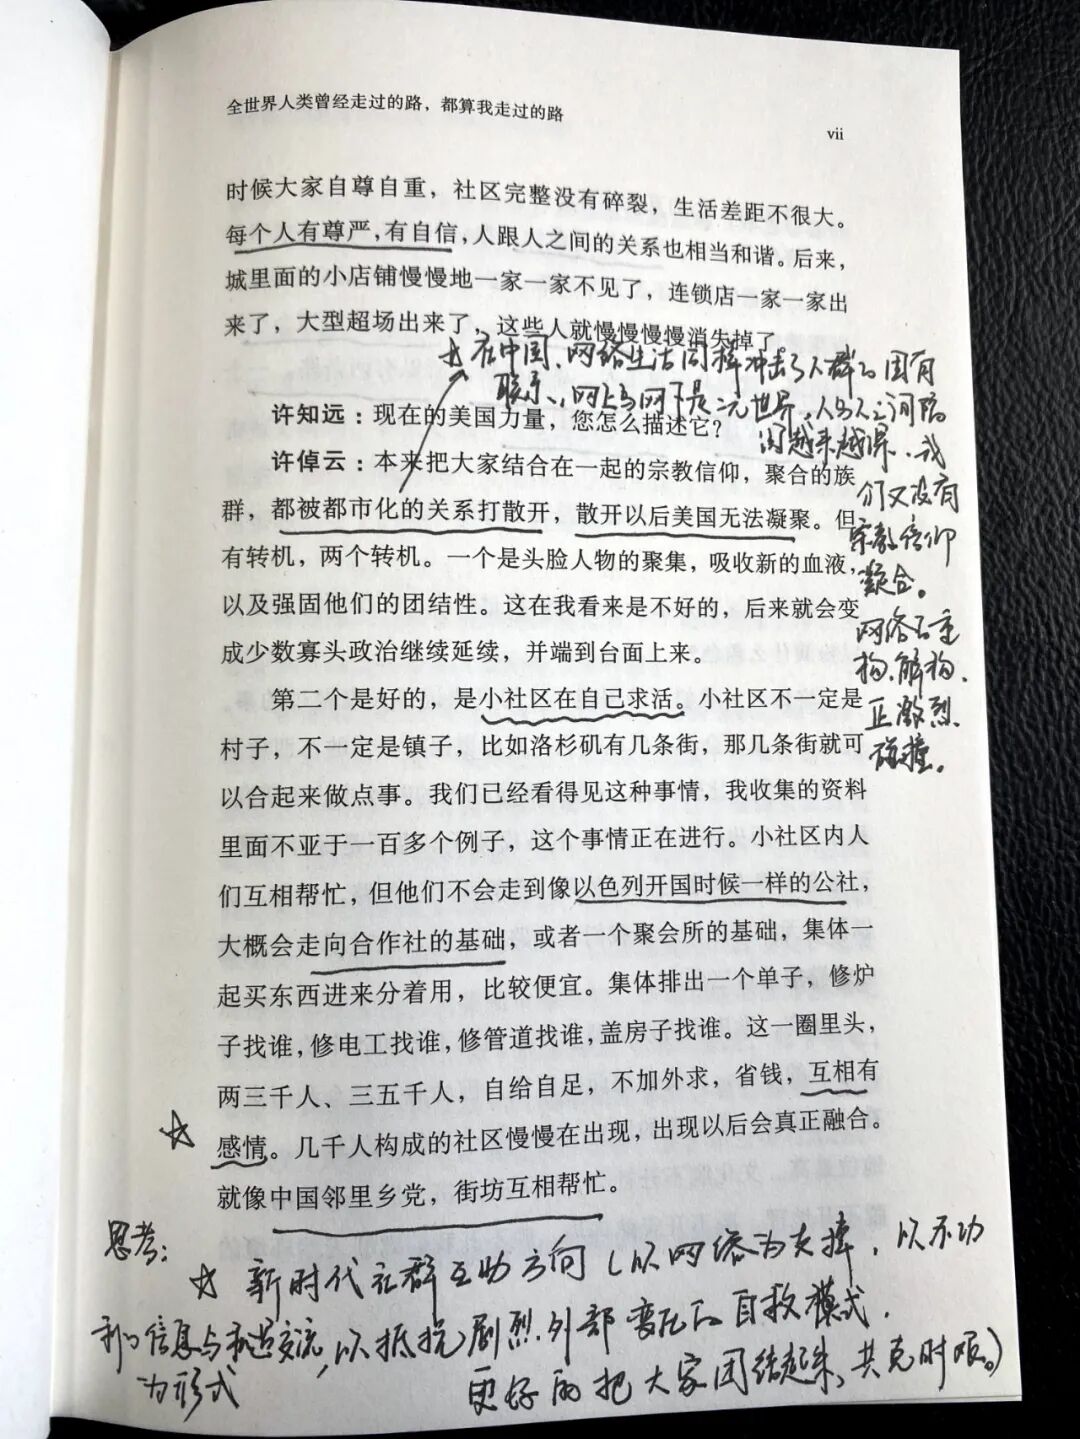 全世界人类曾经走过的路，都算我走过的路
vii
时候大家自尊自重，社区完整没有碎裂，生活差距不很大。
每个人有尊严，有自信，人跟人之间的关系也相当和谐。后来，
城里面的小店铺慢慢地一家一家不见了，连锁店一家一家出
来了，大型超场出来了，这些人就慢慢慢慢消失掉了
在中国、网络生活同样冲击了人群的固有
联系、网上与网下是二元世界，人与人之间隔
阂越来越深、我
们又没有
宗教信仰
凝合。
网络在重
构、解构、
正激烈
碰撞。
许知远：现在的美国力量，您怎么描述它？
许倬云：本来把大家结合在一起的宗教信仰，聚合的族
群，都被都市化的关系打散开，散开以后美国无法凝聚。但
有转机，两个转机。一个是头脸人物的聚集，吸收新的血液，
以及强固他们的团结性。这在我看来是不好的，后来就会变
成少数寡头政治继续延续，并端到台面上来。
第二个是好的，是小社区在自己求活。小社区不一定是
村子，不一定是镇子，比如洛杉矶有几条街，那几条街就可
以合起来做点事。我们已经看得见这种事情，我收集的资料
里面不亚于一百多个例子，这个事情正在进行。小社区内人
们互相帮忙，但他们不会走到像以色列开国时候一样的公社，
大概会走向合作社的基础，或者一个聚会所的基础，集体一
起买东西进来分着用，比较便宜。集体排出一个单子，修炉
子找谁，修电工找谁，修管道找谁，盖房子找谁。这一圈里头，
两三千人、三五千人，自给自足，不加外求，省钱，互相有
感情。几千人构成的社区慢慢在出现，出现以后会真正融合。
就像中国邻里乡党，街坊互相帮忙。
思考：
新时代社群互助方向（以网络为支撑，以不功
利的信息与交流，以抵抗剧烈外部变化的自救模式，
为形式
更好的把大家团结起来，共克时艰。）